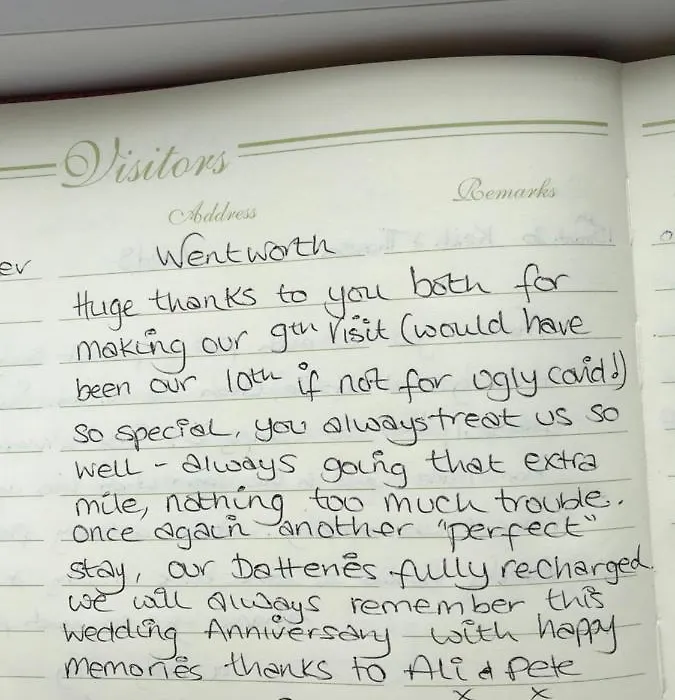 Visitors
Address Remarks
er Wentworth
Huge thanks to you both for
making our 9th visit (would have
been our 10th if not for ugly covid!)
so special, you always treat us so
well - always going that extra
mile, nothing too much trouble.
Once again another "perfect"
stay, our batteries fully re-charged.
We will always remember this
wedding Anniversary with happy
memories thanks to Ali & Pete
x x